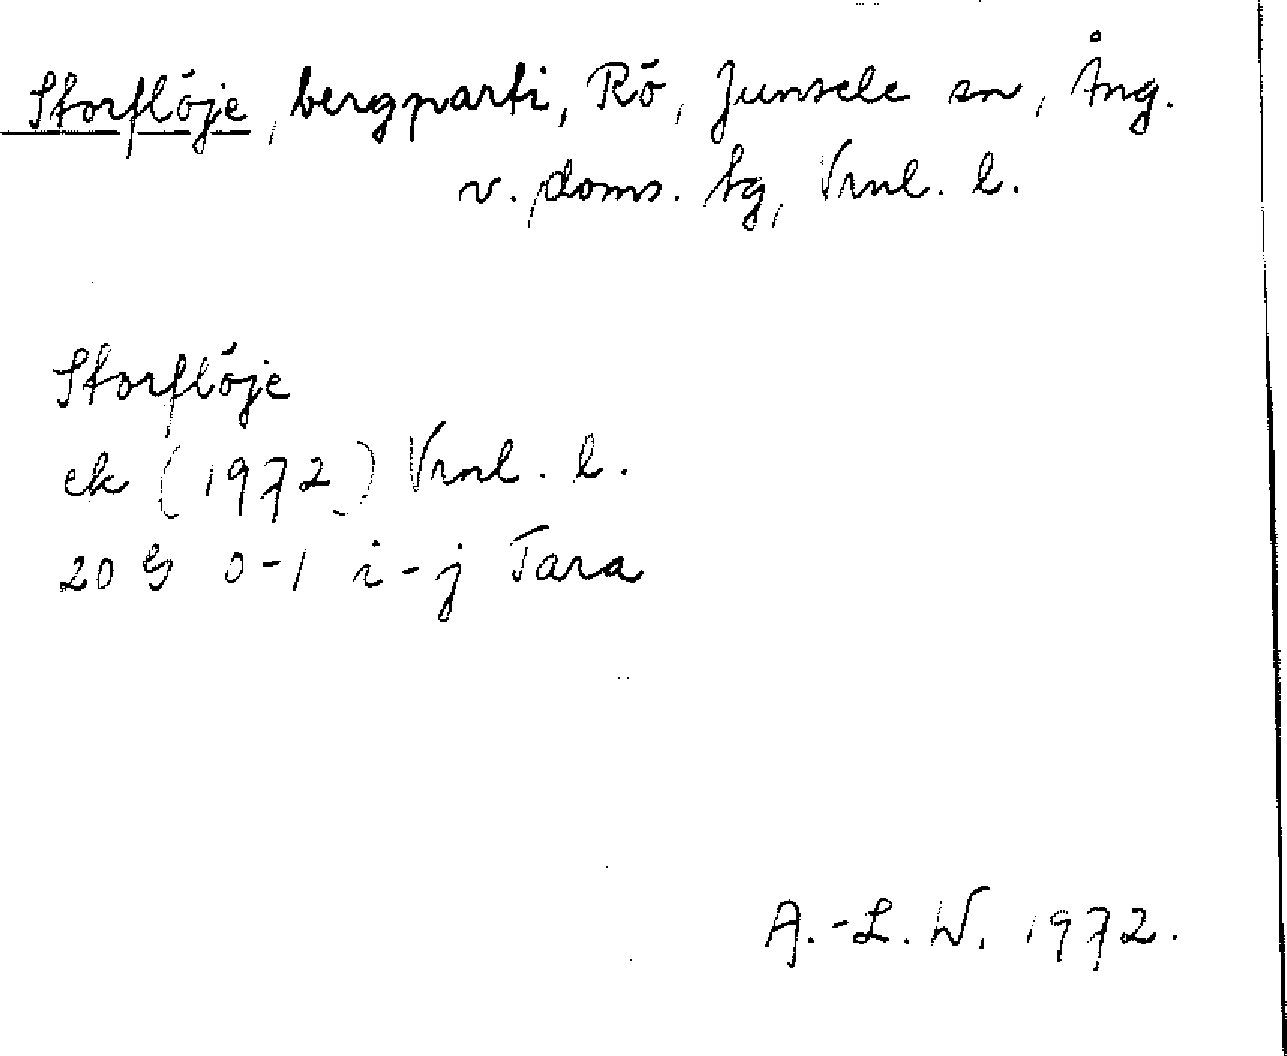 Storflöje, bergparti, Rö, Junsele sn, Ång.
v. doms. tg, Vrnl. l.
Storflöje
ek (1972) Vrnl. l.
20 G 0-1 i-j Tara
A.-L. W. 1972.